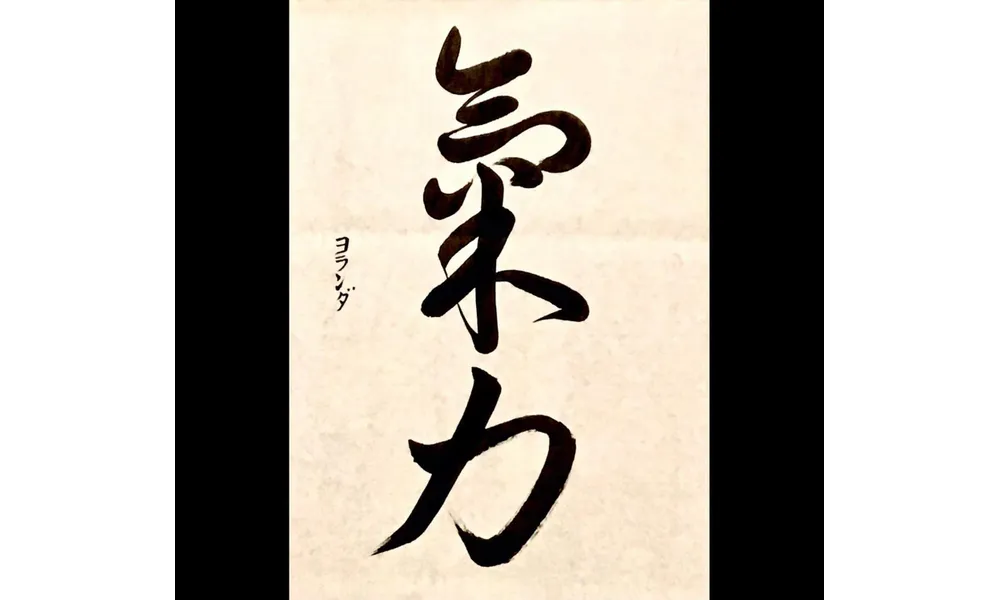 氣力
ヨランダ